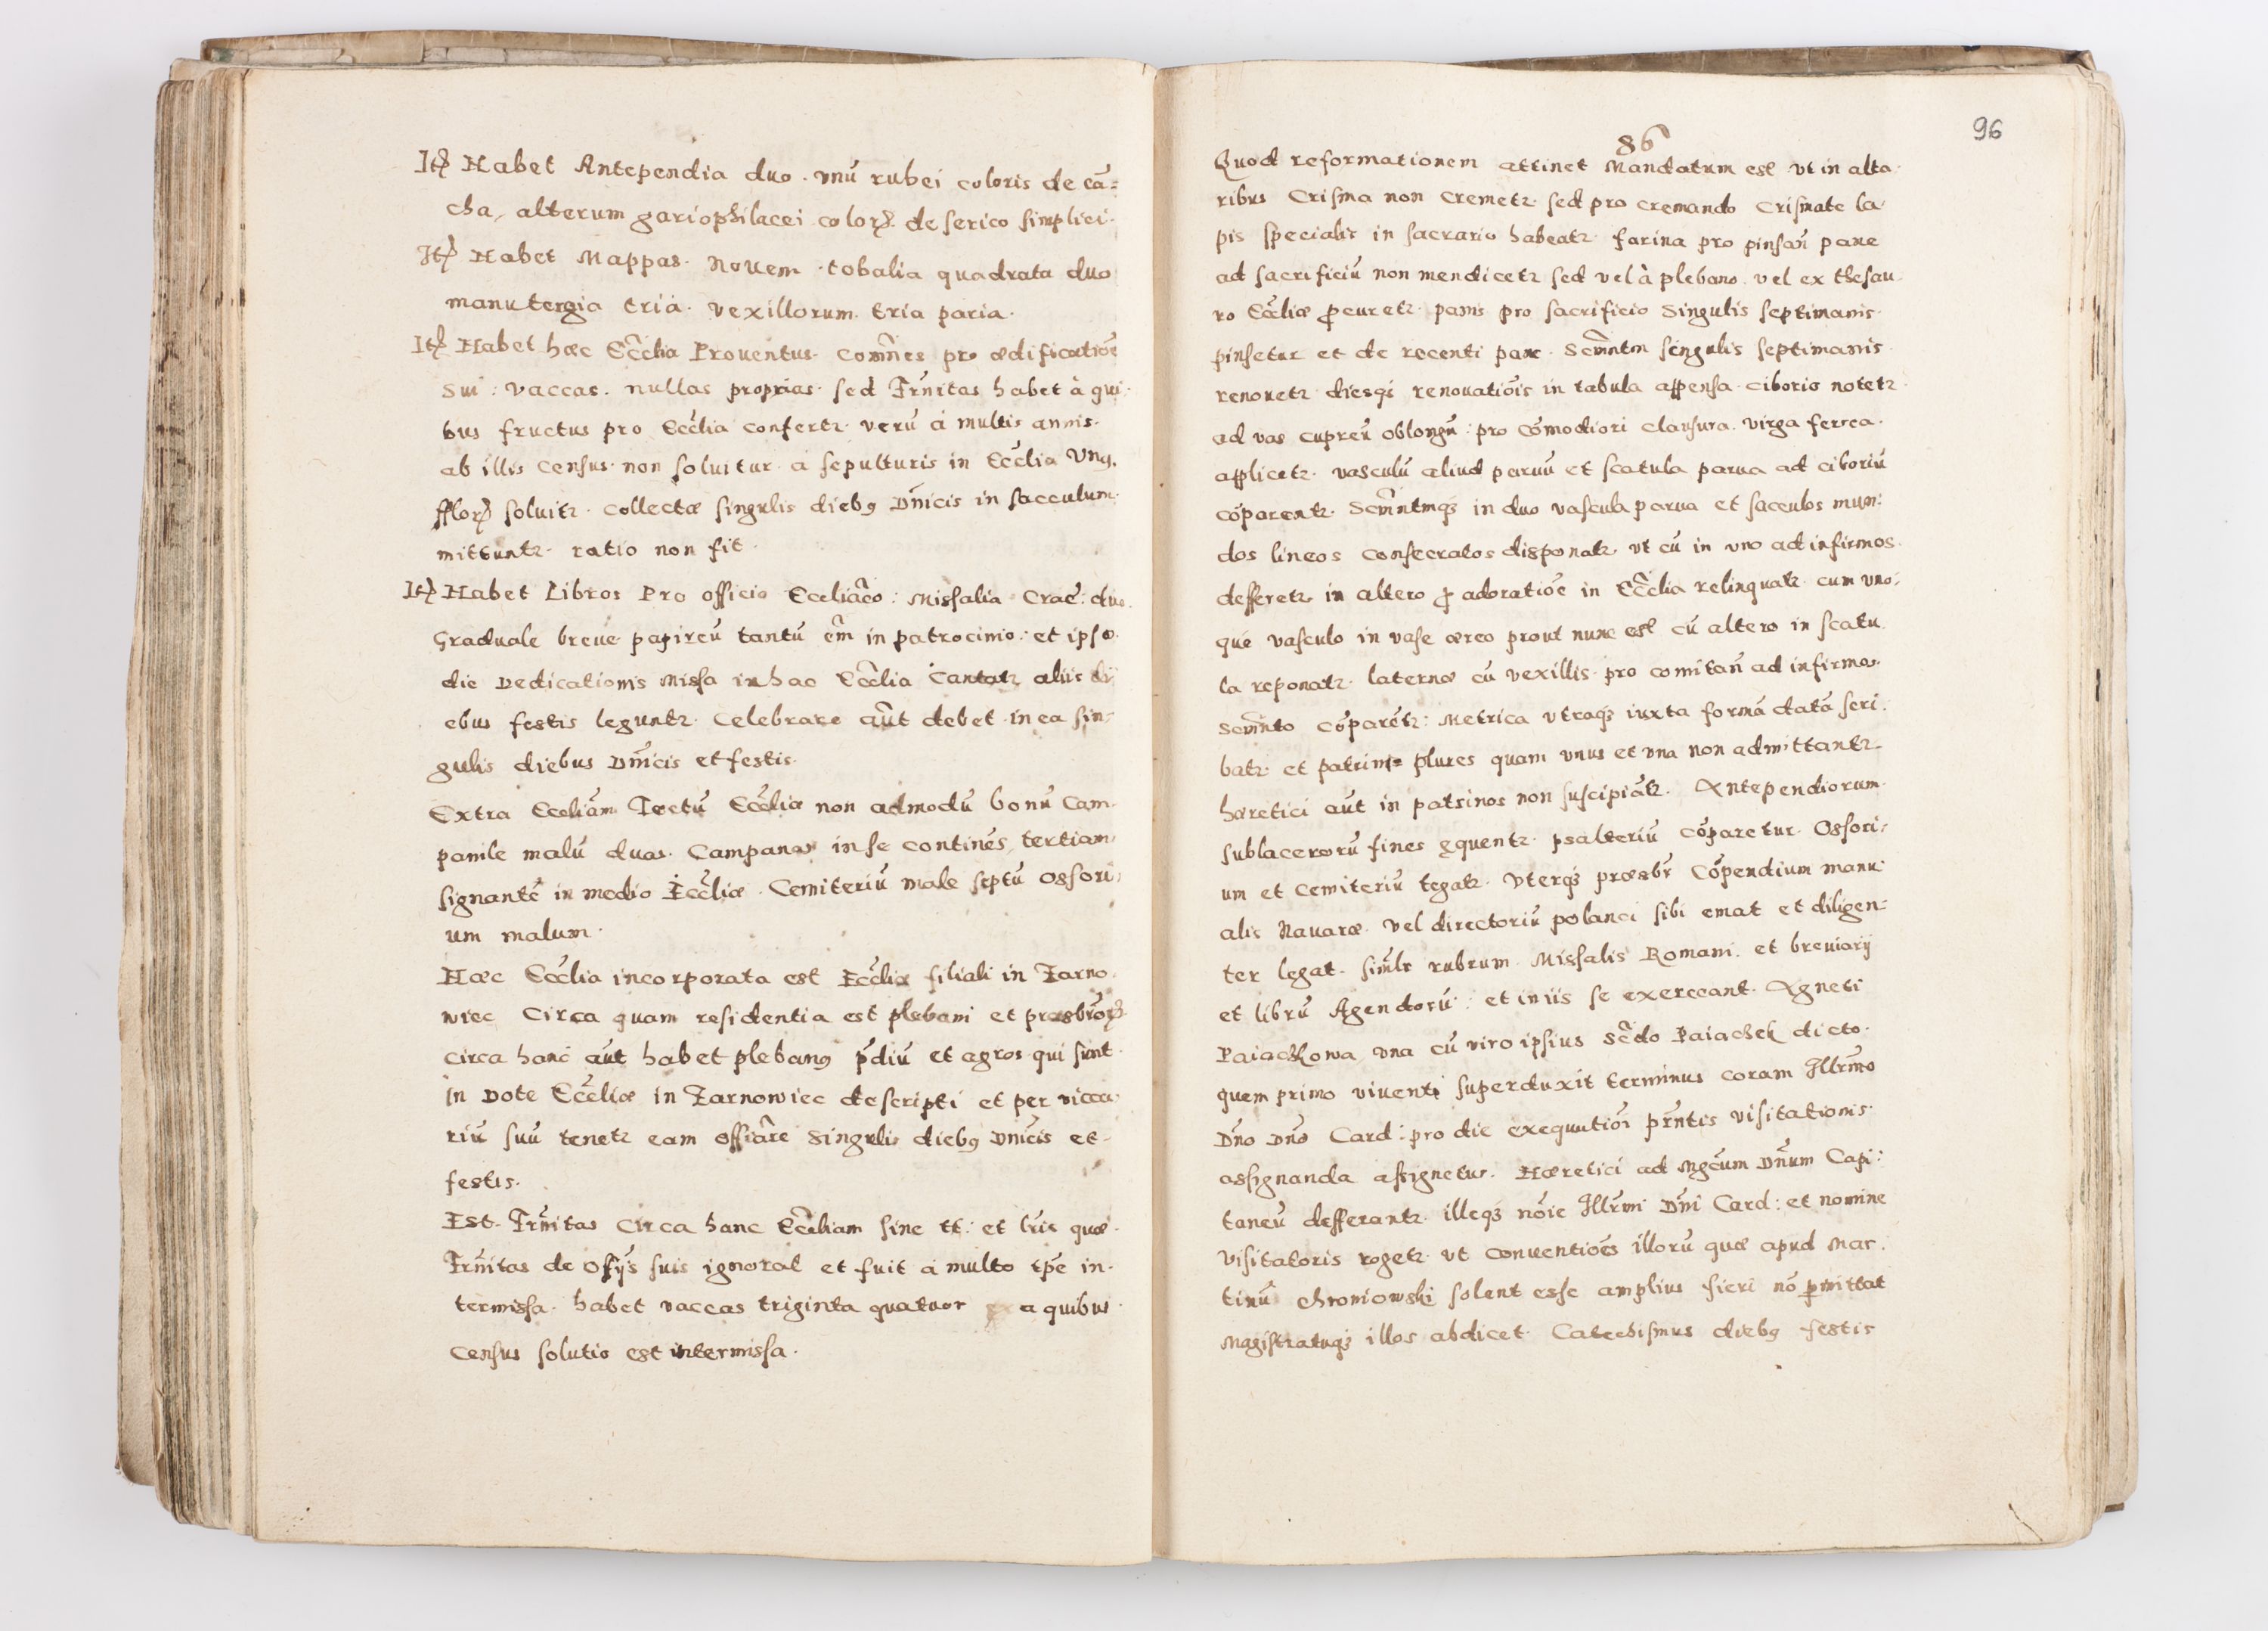 Itẽ Habet Antependia duo. vnũ rubei coloris de cã=
cha, alterum gariophilacei colorꝝ. de serico simplici.
Itẽ Habet Mappas. Nouem. tobalia quadrata duo
manutergia tria. vexillorum. tria paria.
Itẽ Habet hæc Ecclia Prouentus. comñes pro ædificatiõe
sui: vaccas. nullas proprias. sed Frñitas habet à qui-
bus fructus pro Ecclia confertr. verũ à multis annis.
ab illis Census. non soluitur. à sepulturis in Ecclia Vng.
fflorꝝ soluitr. Collectæ singulis diebꝰ Dñicis in sacculum.
mittuntr. ratio non fit.
Itẽ Habet Libros Pro officio Eccliãco: Missalia Crac̃: duo.
Graduale breue papireũ tantũ em̃ in patrocinio: et ipso.
die Dedicationis Missa in hac Ecclia Cantatr aliis di
ebus festis leguntr. Celebrare aũt debet. in ea sin-
gulis diebus Dñicis et festis.
Extra Eccliãm Tectũ Eccliæ non admodũ bonũ Cam-
panile malũ duas. Campanas in se continẽs, tertiam
signantẽ in medio Eccliæ. Cemiteriũ male septũ Ossori-
um malum.
Hæc Ecclia incorporata est Eccliæ filiali in Tarno-
wiec Circa quam residentia est plebani et præsbrõrꝝ.
Circa hanc aũt habet plebanꝰ p̃diũ et agros qui sunt.
in Dote Eccliæ in Tarnowiec descripti et per vicca-
riũ suũ tenetr eam offiãre singulis diebꝰ Dnicis et-
festis.
Est. Frñitas Circa hanc Eccliam sine tt: et lris quæ.
Frñitas de Offijs suis ignorat et fuit à multo tpẽ in-
termissa. habet vaccas triginta quatuor a quibus.
Census solutio est intermissa.
96
86
Quod reformationem attinet Mandatum est vt in alta-
ribus Crisma non Cremetr. sed pro cremando Crismate la-
pis specialis in sacrario habeatr. farina pro pinsañ pane
ad sacrificiũ non mendicetr sed vel à plebano. vel ex thesau-
ro Eccliæ ꝓcuretr. panis pro sacrificio Singulis septimanis.
pinsetur et de recenti pane. Scm̃ntm singulis septimanis
renouetr diesqꝫ renouatiõis in tabula appensa. Ciborio notetr.
ad vas cupreũ oblongũ: pro Cõmodiori Clausura. virga ferrea.
applicetr. vasculũ aliud paruũ et scatula parua ad ciboriũ
cõparentr. Scm̃ntmqꝫ in duo vascula parua et sacculos mun-
dos lineos Consecratos disponatr. vt cũ in vno ad infirmos.
defferetr. in altero ꝓ adoratiõe in Ecclia relinquatr. cum vno-
quẽ vasculo in vase æreo prout nunc est cũ altero in scatu-
la reponatr. laternæ cũ vexillis. pro comitañ ad infirmos.
Scm̃nto cõparẽtr: Metrica vtraqꝫ iuxta formã datã scri-
batr. et patrini plures quam vnus et vna non admittantr
hæretici aũt in patrinos non suscipiãtr. Antependiorum.
sublacerorũ fines ęquentr. psalteriũ cõparetur. Ossori-
um et Cemiteriũ tegatr. Vterqꝫ præsbr̃ Cõpendium manu-
alis Nauaræ. vel directoriũ polanci sibi emat et diligen-
ter legat. sim̃lr rubrum. Missalis Romani. et breuiarij
et librũ Agendorũ: et in iis se exerceant. Agneti
Paiaczkowa vna cũ viro ipsius Sc̃do Paiaczek dicto.
quem primo viventi superduxit terminus coram Illr̃mo
Dño Dño Card: pro die exequutiõi pr̃ntis visitationis.
assignanda assignetur. Hæretici ad Mgc̃um Dñum Capi-
taneũ defferantr. illeqꝫ nõie Illr̃mi Dñi Card: et nomine
visitatoris rogetr. vt conuentiões illorũ quæ apud Mar-
tinũ Chroniowski solent esse amplius fieri nõ ꝑmittat
Magistratuqꝫ illos abdicet. Catechismus diebꝰ festis